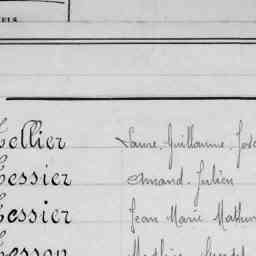 Tellier Laure, Guillaume, José
Tessier Amand, Julien
Tessier Jean Marie Mathur
Tesson